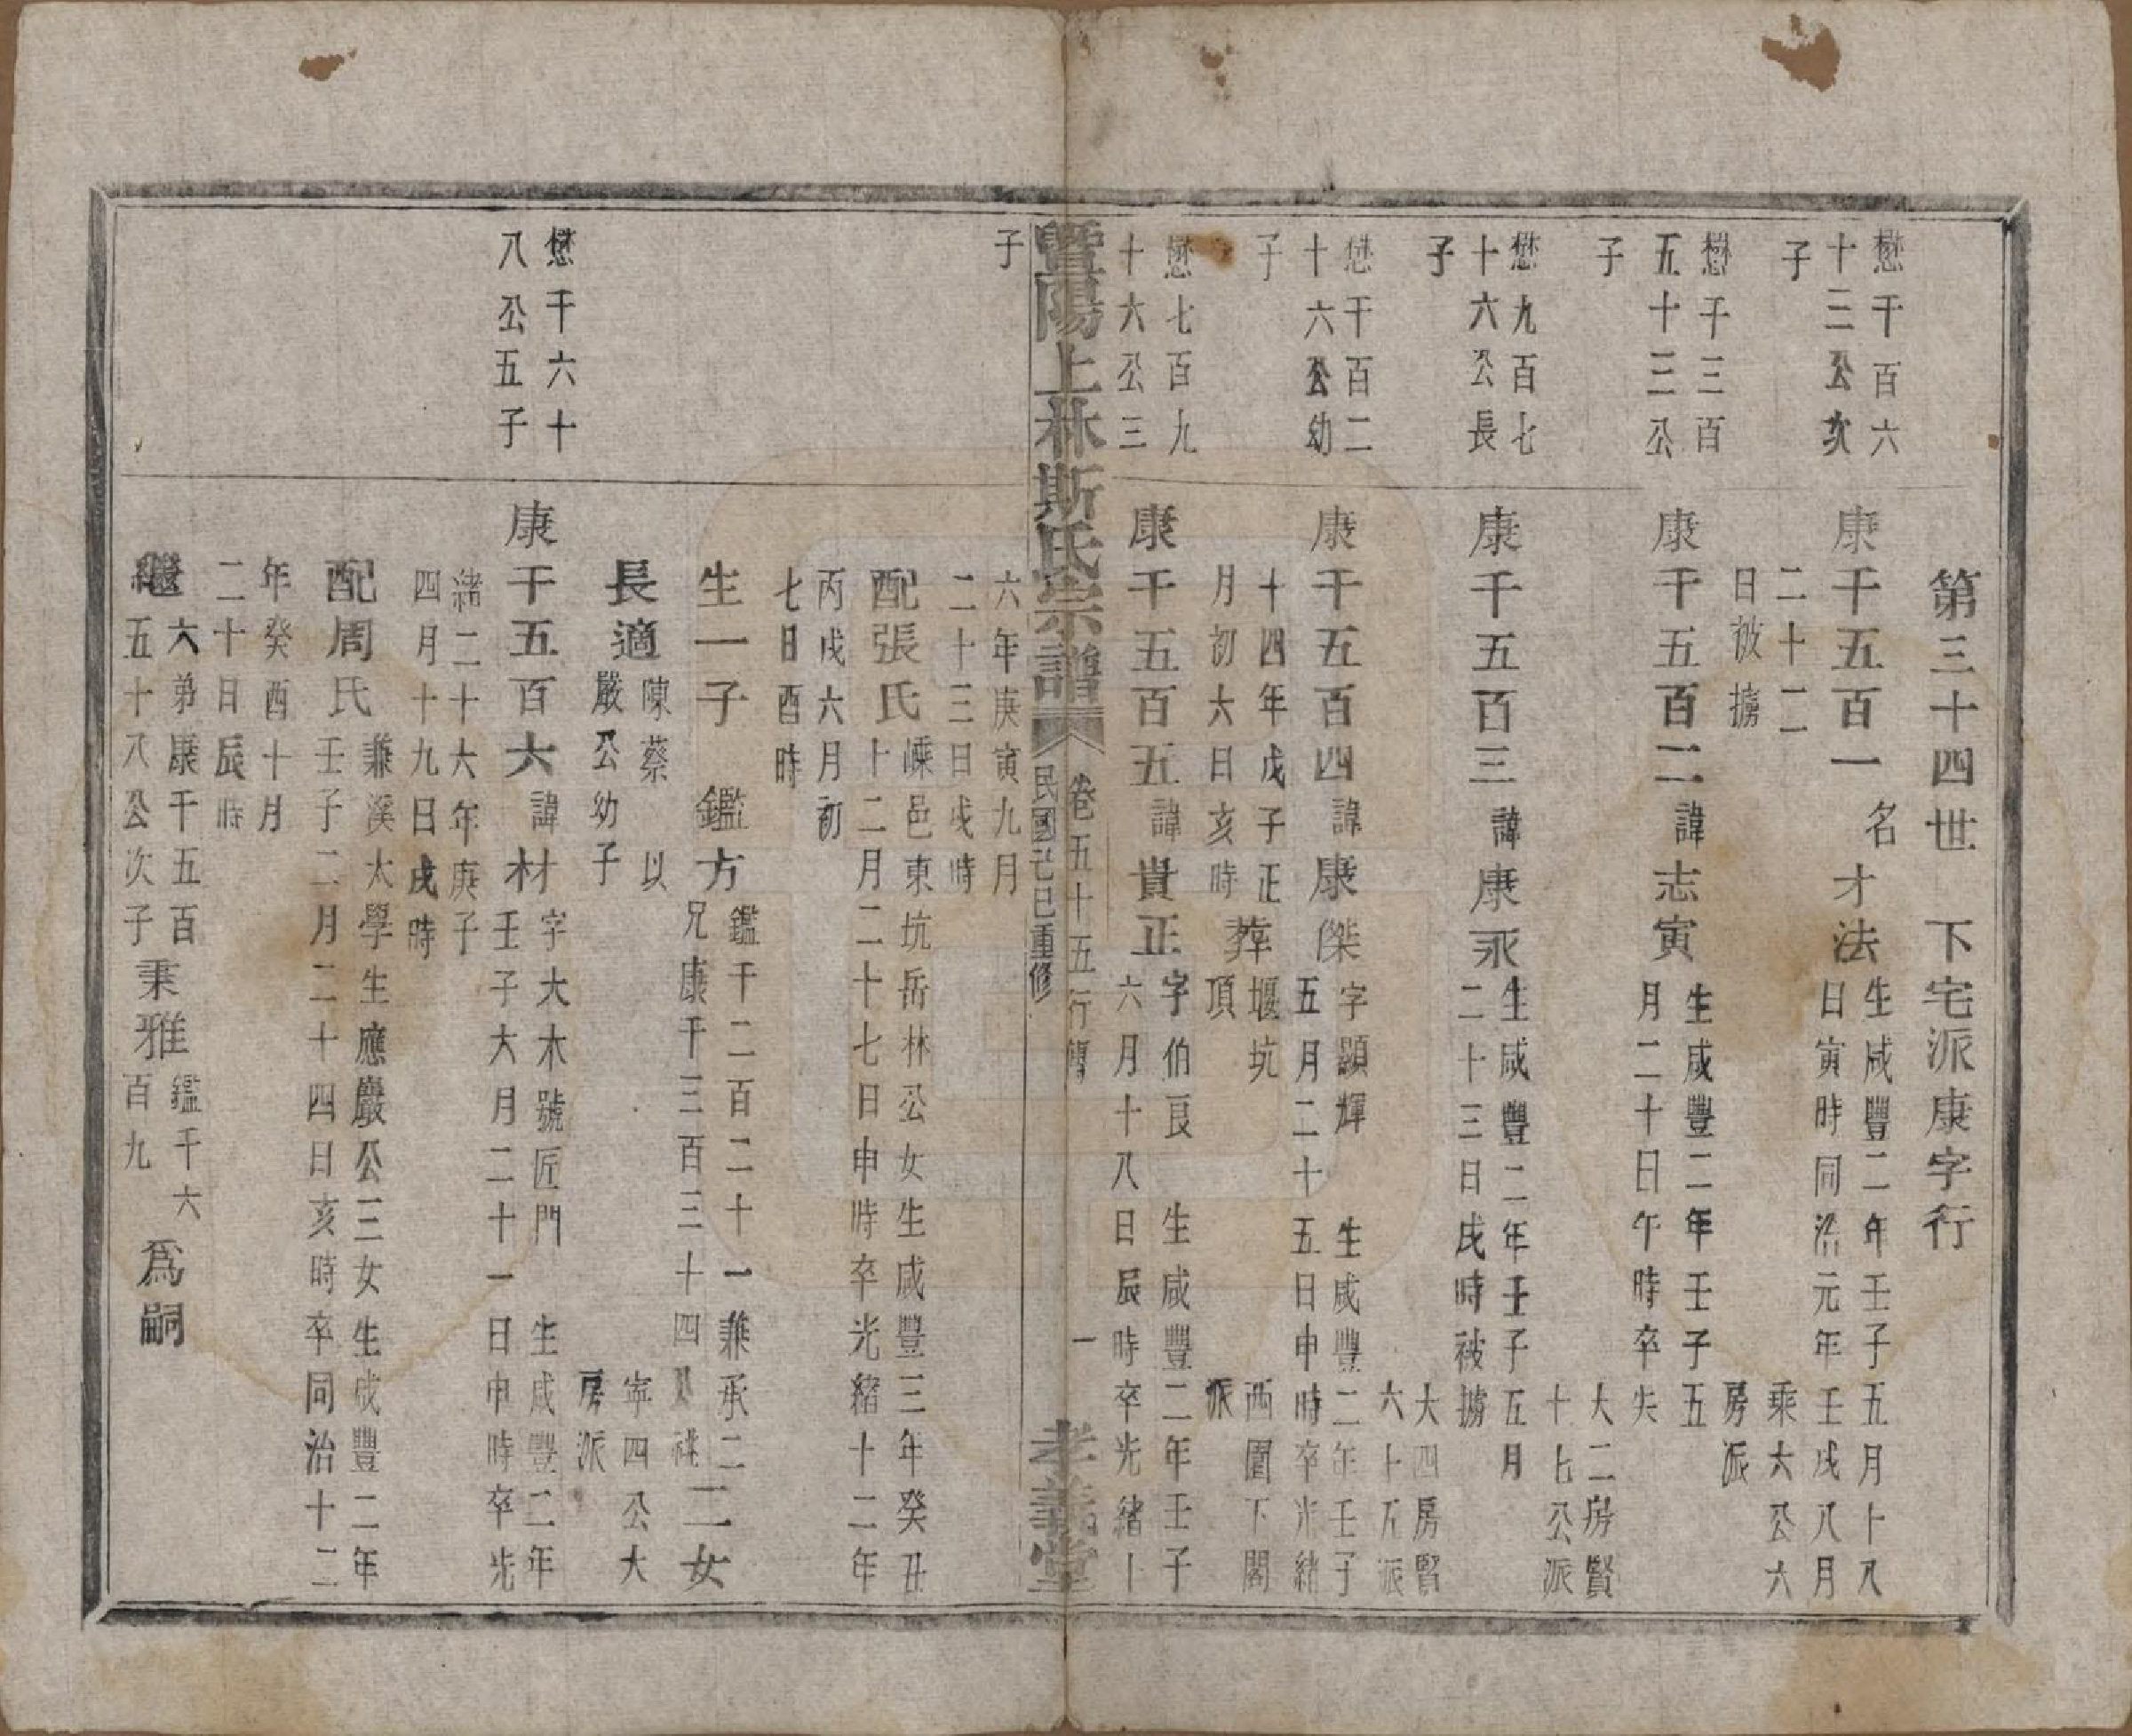 第三十四世　下宅派康字行
懋千百六
十二公次
子
康千五百一名才法
生咸豐二年壬子五月十八
日寅時同治元年壬戌八月
二十二
日被擄
乘六公六
房派
懋千三百
五十三公
子
康千五百二諱志寅
生咸豐二年壬子五
月二十日午時卒失
大二房賢
十七公派
懋九百七
十六公長
子
康千五百三諱康永
生咸豐二年壬子五月
二十三日戌時被擄
大四房賢
六十五派
懋千百二
十六公幼
子
康千五百四諱康傑
字顯輝　生咸豐二年壬子
五月二十五日申時卒光緒
十四年戊子正
月初六日亥時
葬
堰坑
頂
西園下閣
派
懋七百九
十六公三
子
康千五百五諱貴正
字伯良　生咸豐二年壬子
六月十八日辰時卒光緒十
暨陽上林斯氏宗譜
卷五十五行傳　一
民國己巳重修
孝義堂
六年庚寅九月
二十三日戌時
配張氏
嵊邑東坑岳林公女生咸豐三年癸丑
十二月二十七日申時卒光緒十二年
丙戌六月初
七日酉時
生一子　鑑方
鑑千二百二十一兼承二
兄康千三百三十四祧
二女
長適
陳蔡　以
嚴公幼子
寧四公大
房派
懋千六十
八公五子
康千五百六諱材
字大木號匠門　生咸豐二年
壬子六月二十一日申時卒光
緒二十六年庚子
四月十九日戌時
配周氏
兼溪太學生應嚴公三女生咸豐二年
壬子二月二十四日亥時卒同治十二
年癸酉十月
二十日辰時
繼
六弟康千五百
五十八公次子
秉雅
鑑千六
百九
爲嗣